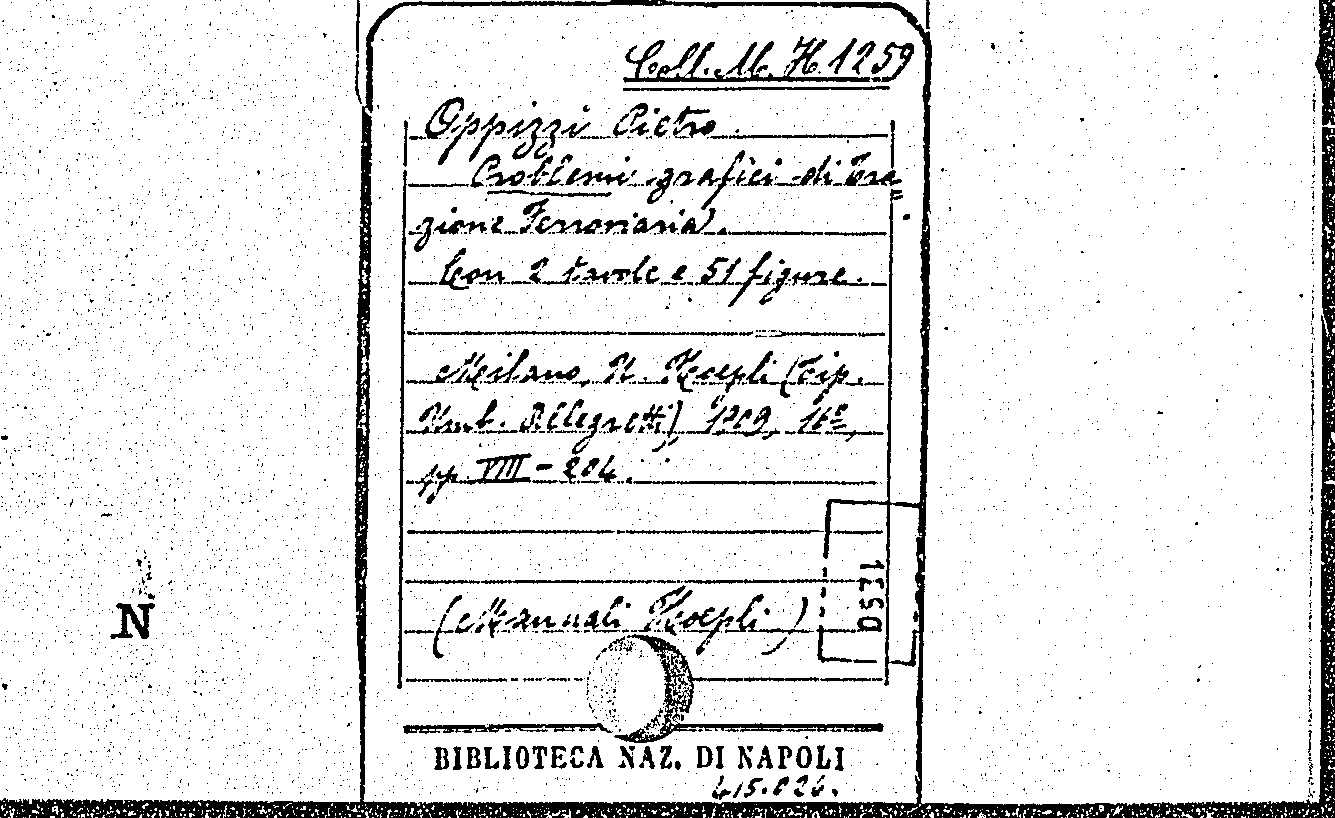 Coll. M. H 1259
Oppizzi Pietro.
Problemi grafici di Tra=
zione Ferroviaria.
Con 2 tavole e 51 figure.
Milano, U. Hoepli (Tip.
Umb. Allegretti), 1909, 16º,
pp. VIII - 204.
(Manuali Hoepli)
N
BIBLIOTECA NAZ. DI NAPOLI